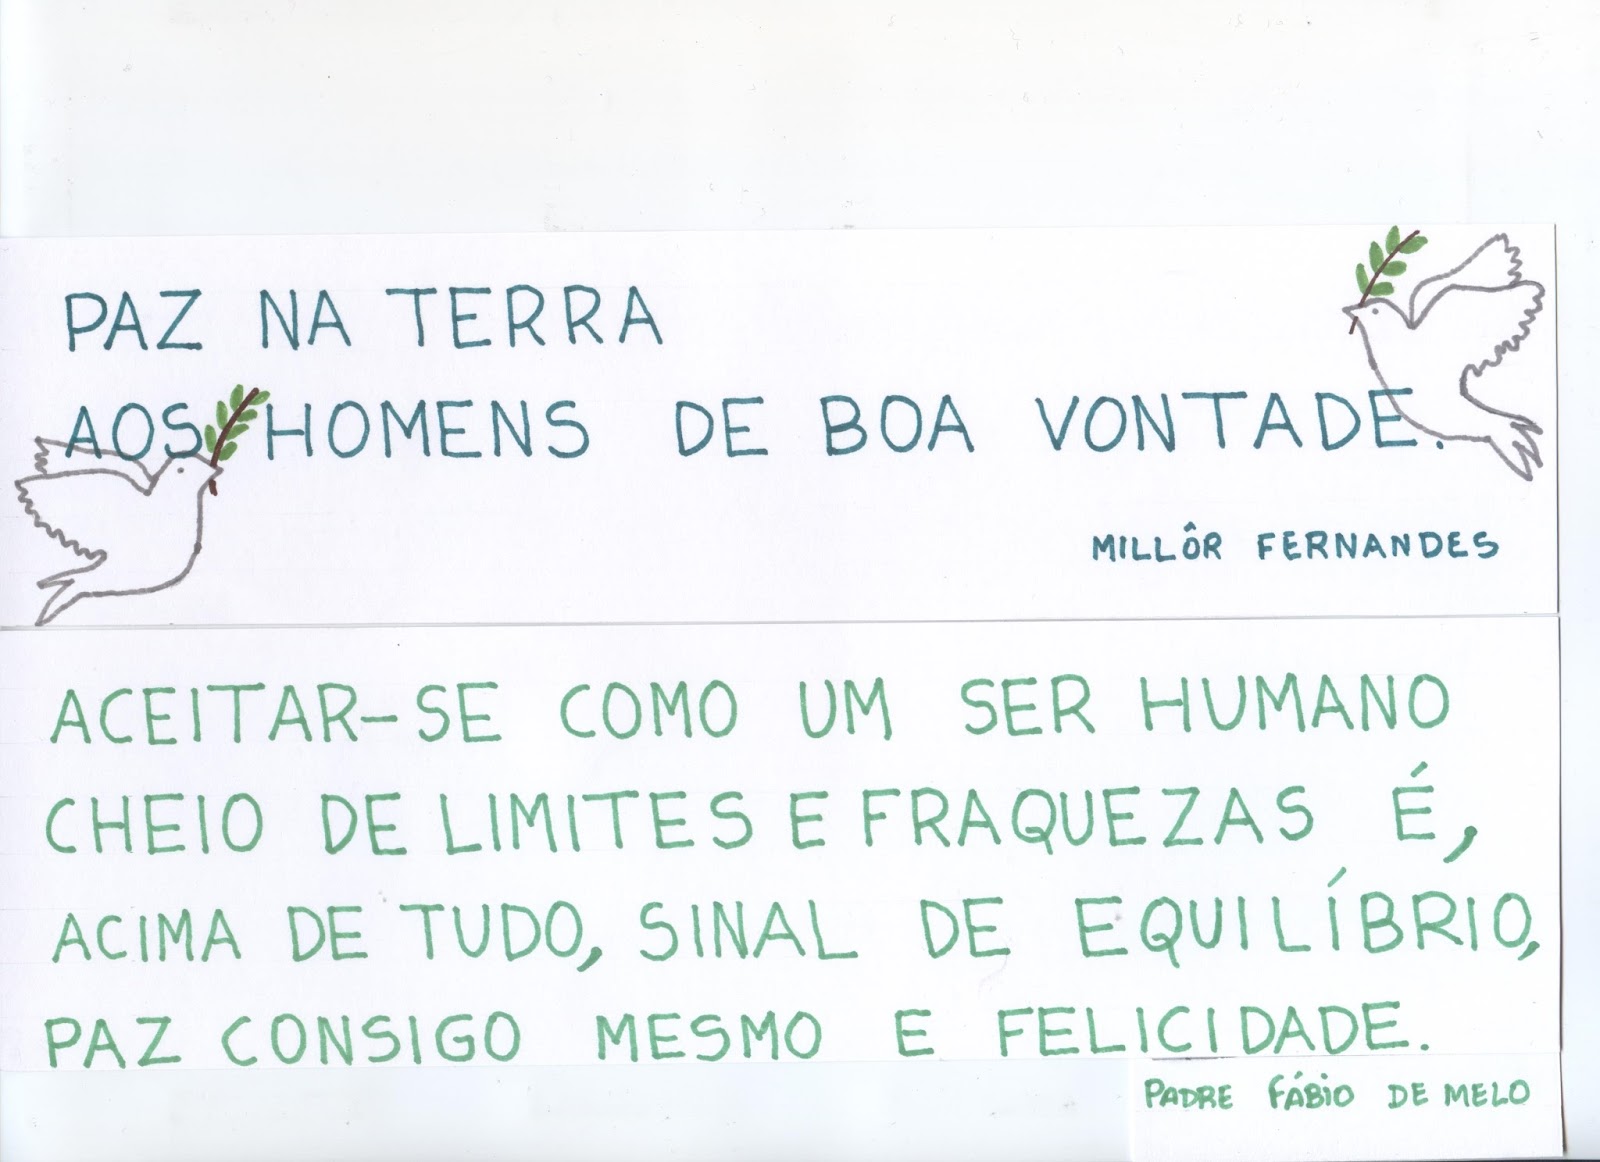 PAZ NA TERRA
AOS HOMENS DE BOA VONTADE.
MILLÔR FERNANDES
ACEITAR-SE COMO UM SER HUMANO
CHEIO DE LIMITES E FRAQUEZAS É,
ACIMA DE TUDO, SINAL DE EQUILÍBRIO,
PAZ CONSIGO MESMO E FELICIDADE.
PADRE FÁBIO DE MELO